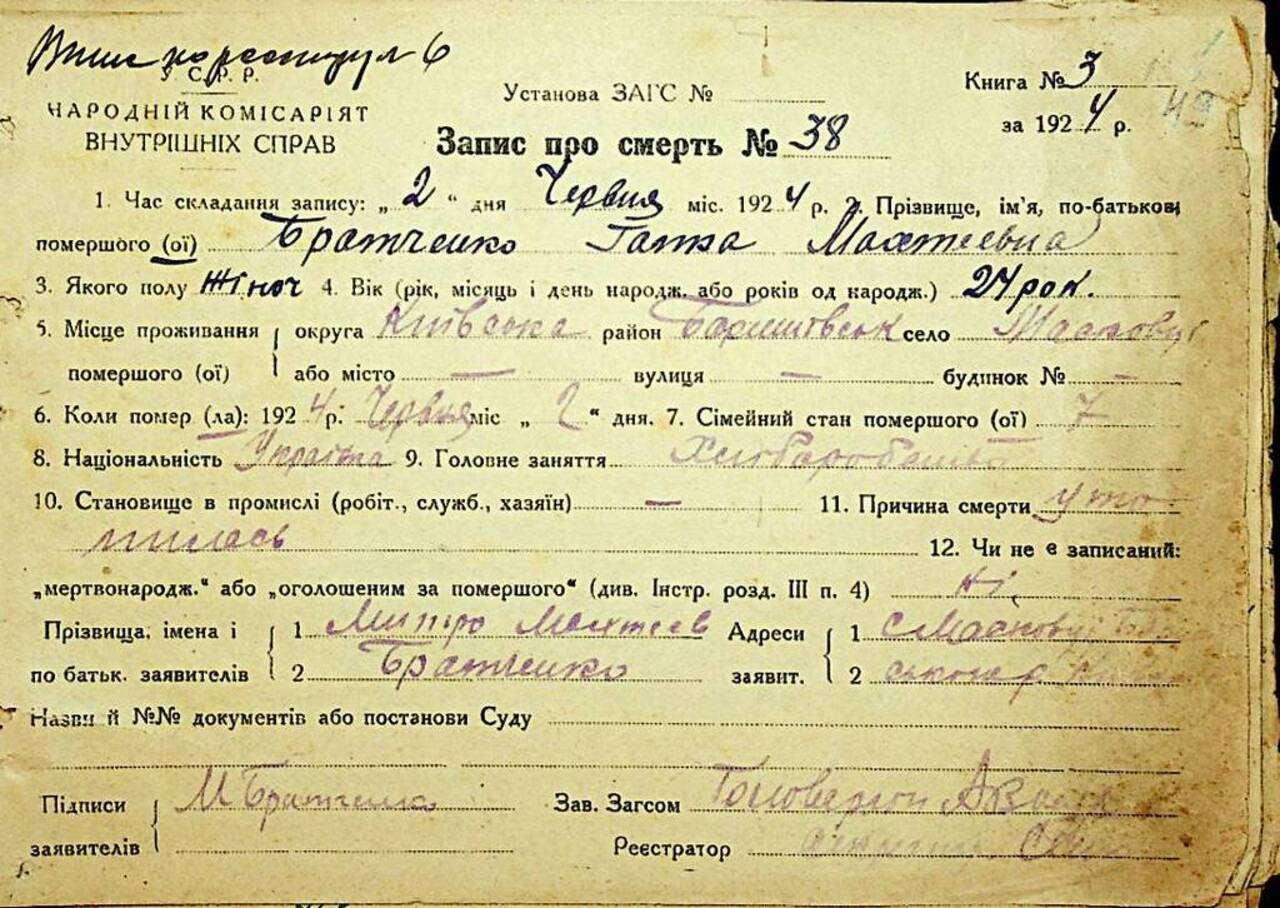 У.С.Р.Р.
НАРОДНІЙ КОМІСАРІЯТ
ВНУТРІШНІХ СПРАВ
Установа ЗАГС №
Книга № 3
за 1924 р.
49
Запис про смерть № 38
1. Час складання запису: „ 2 “ дня Червня міс. 1924 р. 2. Прізвище, ім'я, по-батькові
помершого (ої) Братченко Гапка Махтеевна
3. Якого полу жіноч 4. Вік (рік, місяць і день народж. або років од народж.) 24 рок.
5. Місце проживання округа Київська район Баришівськ село Масковці
помершого (ої) або місто — вулиця — будинок № —
6. Коли помер (ла): 1924 р: Червня міс „ 2 “ дня. 7. Сімейний стан помершого (ої)
8. Національність Українка 9. Головне заняття
10. Становище в промислі (робіт., служб., хазяїн) — 11. Причина смерти уто-
пилась 12. Чи не є записаний:
„мертвонародж.“ або „оголошеним за помершого“ (див. Інстр. розд. III п. 4) ні
Прізвища, імена і 1 Митро Махтеев Адреси 1 с Масковці
по батьк. заявителів 2 Братченко заявит. 2 ського р
Назви й №№ документів або постанови Суду
Підписи М Братченко Зав. Загсом
заявителів Реєстратор